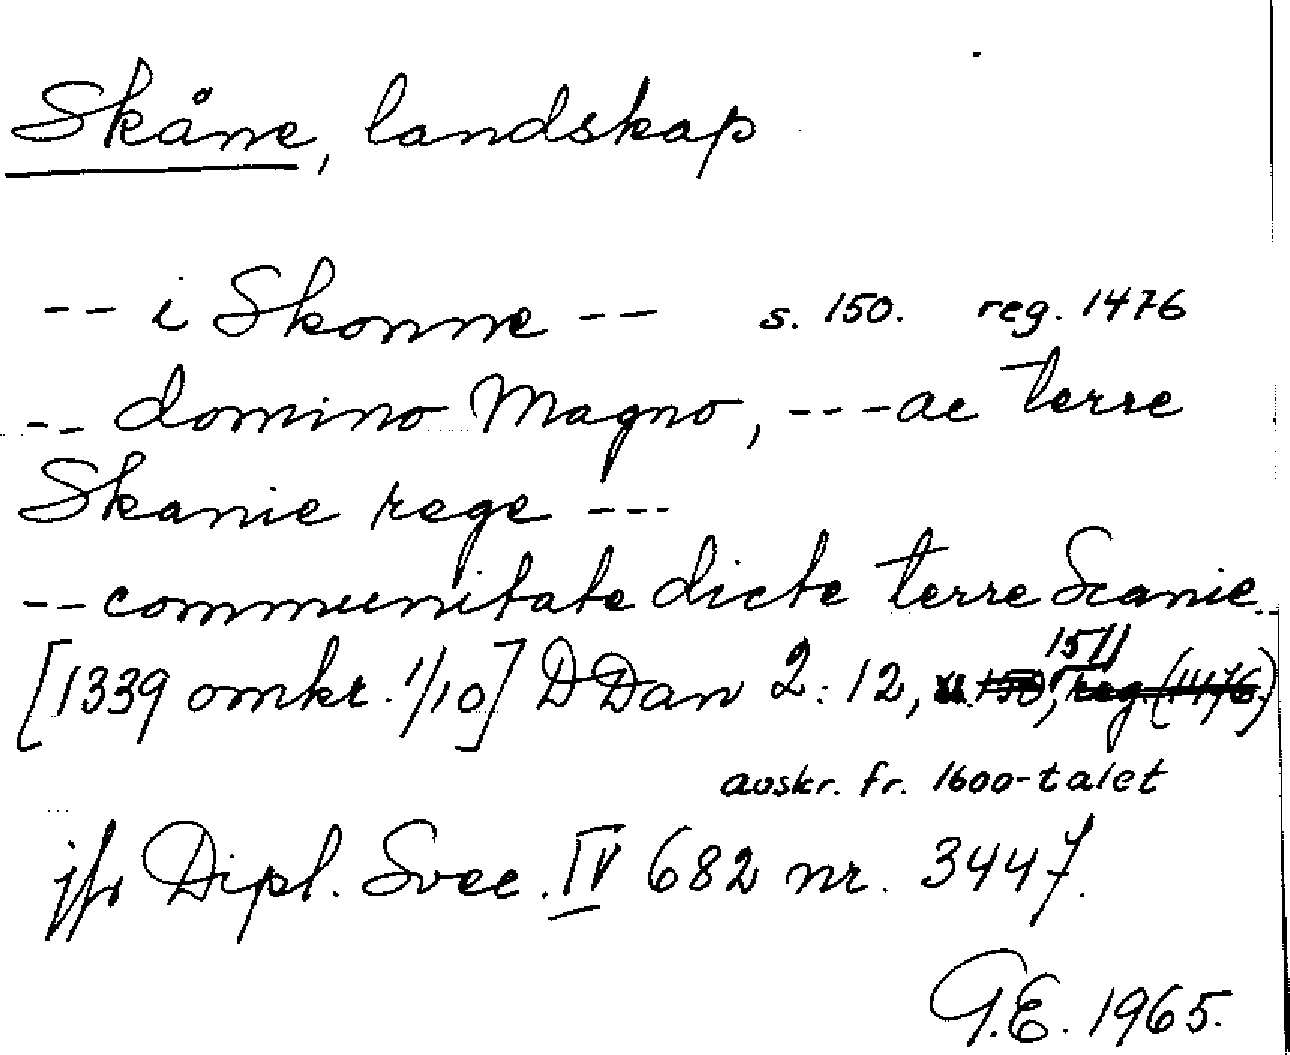 Skåne, landskap
-- i Skonne -- s. 150. reg. 1476
-- domino Magno, --- ac terre
Skanie rege ---
-- communitate dicte terre Scanie --
[1339 omkr. 1/10] DDan 2:12, s. 150, 151 f reg (1476)
avskr. fr. 1600-talet
jfr Dipl. Svec. IV 682 nr. 3447.
G.E. 1965.